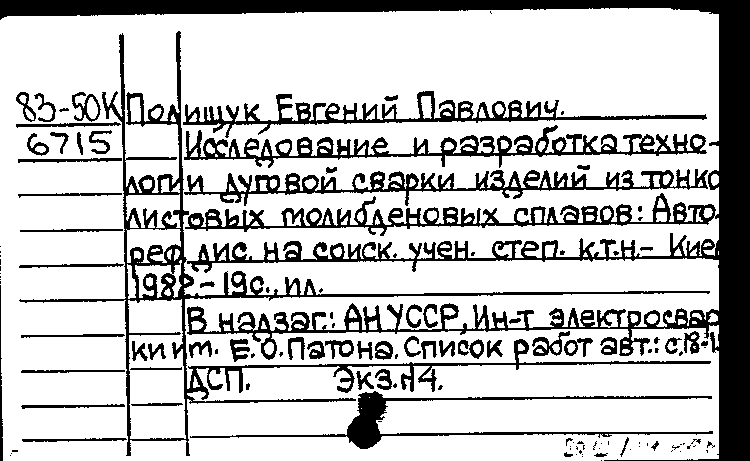 83-50К Полищук, Евгений Павлович.
6715 Исследование и разработка техно-
логии дуговой сварки изделий из тонко
листовых молибденовых сплавов: Авто
реф. дис. на соиск. учен. степ. к.т.н.- Кие
1982.- 19с., ил.
В надзаг.: АН УССР, Ин-т электросвар
ки им. Е.О.Патона. Список работ авт.: с.18-1
ДСП. Экз.№4.